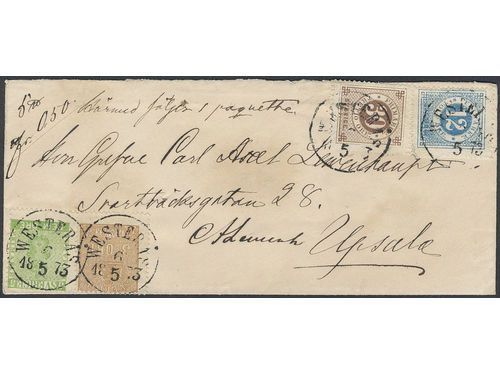 0,50 Härmed följer 1 paquette
Herr Grefve Carl Axel Lewenhaupt.
Svartbäcksgatan 28.
Upsala
WESTERÅS
6
18 5 73
WESTERÅS
6
18 5 73
30
5
12
5 73